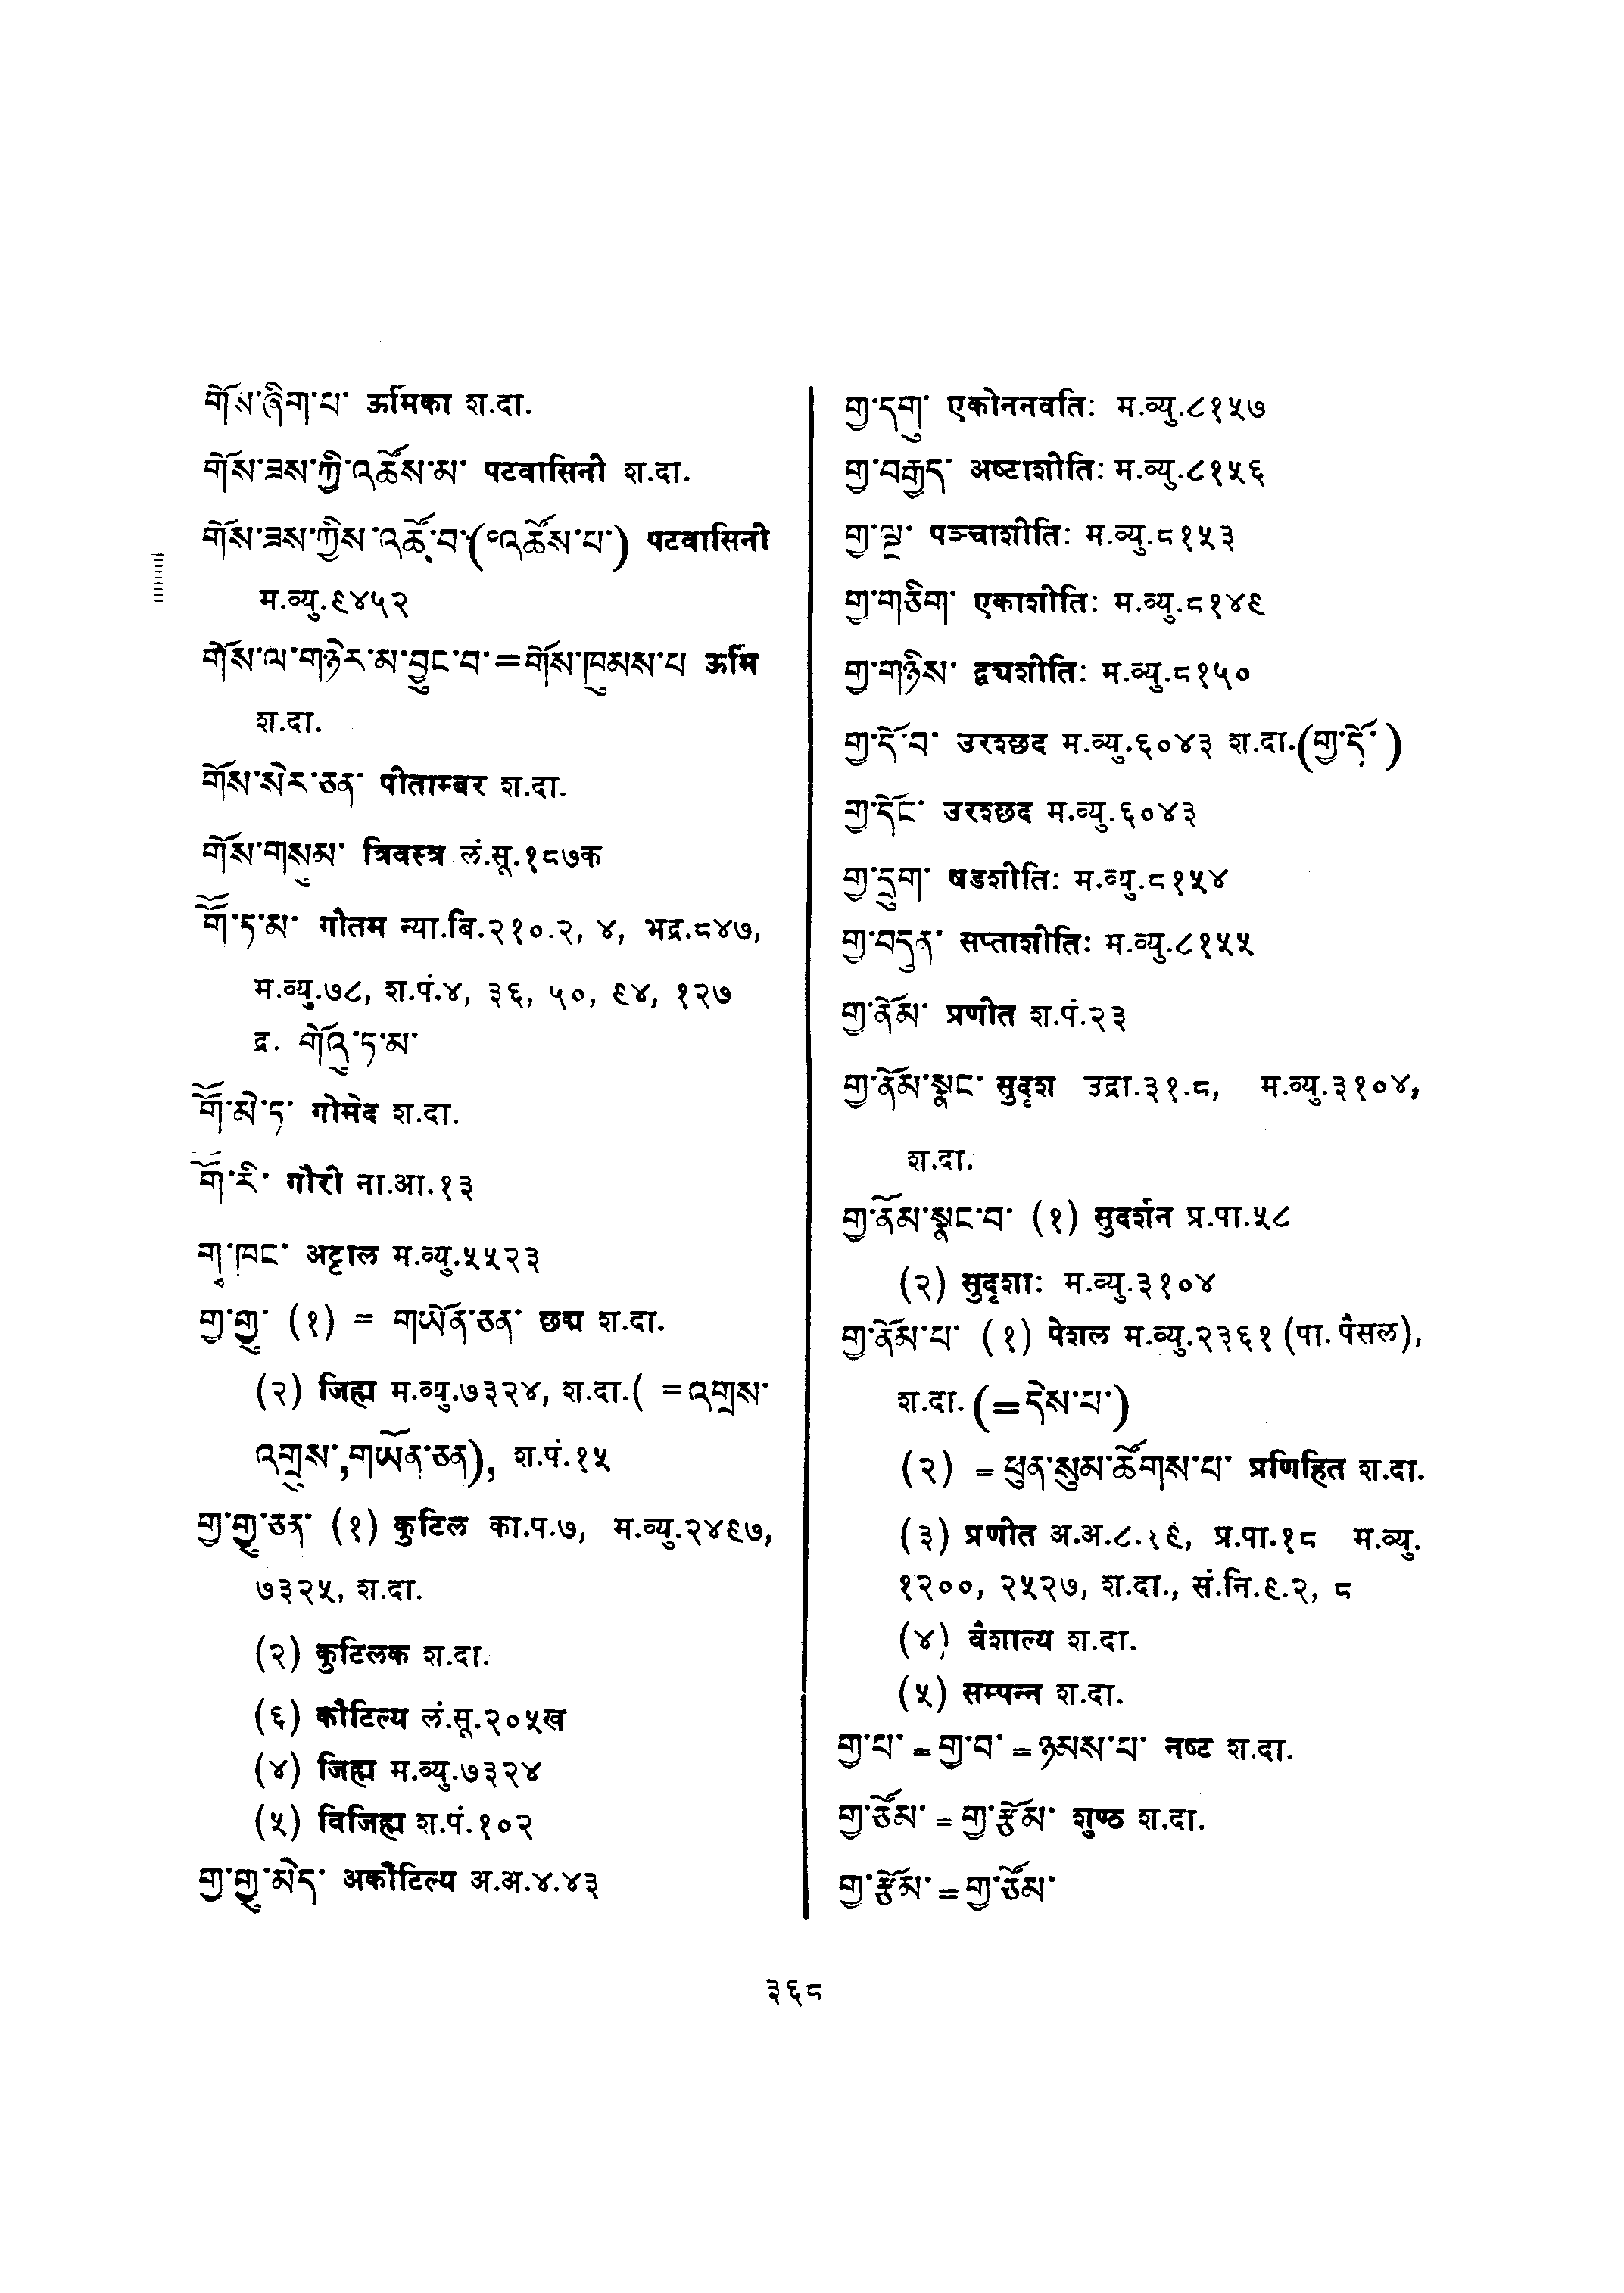 གོས་ཞིག་པ་ ऊर्मिका श.दा.
གོས་ཟས་ཀྱི་འཚོས་མ་ पटवासिनी श.दा.
གོས་ཟས་ཀྱིས་འཚོ་བ་(°འཚོས་པ་) पटवासिनी
म.व्यु.९४५२
གོས་ལ་གཉེར་མ་བྱུང་བ་=གོས་ཁུམས་པ ऊर्मि
श.दा.
གོས་སེར་ཅན་ पीताम्बर श.दा.
གོས་གསུམ་ त्रिवस्त्र लं.सू.१८७क
གཽ་ཏ་མ་ गौतम न्या.बि.२१०.२, ४, भद्र.८४७,
म.व्यु.७८, श.पं.४, ३६, ५०, ९४, १२७
द्र. གོའུ་ཏ་མ་
གཽ་མེ་ད་ गोमेद श.दा.
གཽ་རི་ गौरी ना.आ.१३
གྭ་ཁང་ अट्टाल म.व्यु.५५२३
གྱ་གྱུ་ (१) = གཡོན་ཅན་ छद्म श.दा.
(२) जिह्म म.व्यु.७३२४, श.दा.( =འགྲས་
འགྲུས་,གཡོན་ཅན), श.पं.१५
གྱ་གྱུ་ཅན་ (१) कुटिल का.प.७, म.व्यु.२४९७,
७३२५, श.दा.
(२) कुटिलक श.दा.
(६) कौटिल्य लं.सू.२०५ख
(४) जिह्म म.व्यु.७३२४
(५) विजिह्म श.पं.१०२
གྱ་གྱུ་མེད་ अकौटिल्य अ.अ.४.४३
གྱ་དགུ་ एकोननवतिः म.व्यु.८१५७
གྱ་བརྒྱད་ अष्टाशीतिः म.व्यु.८१५६
གྱ་ལྔ་ पञ्चाशीतिः म.व्यु.८१५३
གྱ་གཅིག་ एकाशीतिः म.व्यु.८१४९
གྱ་གཉིས་ द्वयशीतिः म.व्यु.८१५०
གྱ་དོ་བ་ उरश्छद म.व्यु.६०४३ श.दा.(གྱ་དོ་)
གྱ་དོང་ उरश्छद म.व्यु.६०४३
གྱ་དྲུག་ षडशीतिः म.व्यु.८१५४
གྱ་བདུན་ सप्ताशीतिः म.व्यु.८१५५
གྱ་ནོམ་ प्रणीत श.पं.२३
གྱ་ནོམ་སྣང་ सुदृश उद्रा.३१.८, म.व्यु.३१०४,
श.दा.
གྱ་ནོམ་སྣང་བ་ (१) सुदर्शन प्र.पा.५८
(२) सुदृशाः म.व्यु.३१०४
གྱ་ནོམ་པ་ (१) पेशल म.व्यु.२३६१ (पा. पैसल),
श.दा. (=དེས་པ་)
(२) =ཕུན་སུམ་ཚོགས་པ་ प्रणिहित श.दा.
(३) प्रणीत अ.अ.८.१९, प्र.पा.१८ म.व्यु.
१२००, २५२७, श.दा., सं.नि.९.२, ८
(४) वैशाल्य श.दा.
(५) सम्पन्न श.दा.
གྱ་པ་ =གྱ་བ་ =ཉམས་པ་ नष्ट श.दा.
གྱ་ཙོམ་ =གྱ་རྩོམ་ शुण्ठ श.दा.
གྱ་རྩོམ་ =གྱ་ཙོམ་
३६८